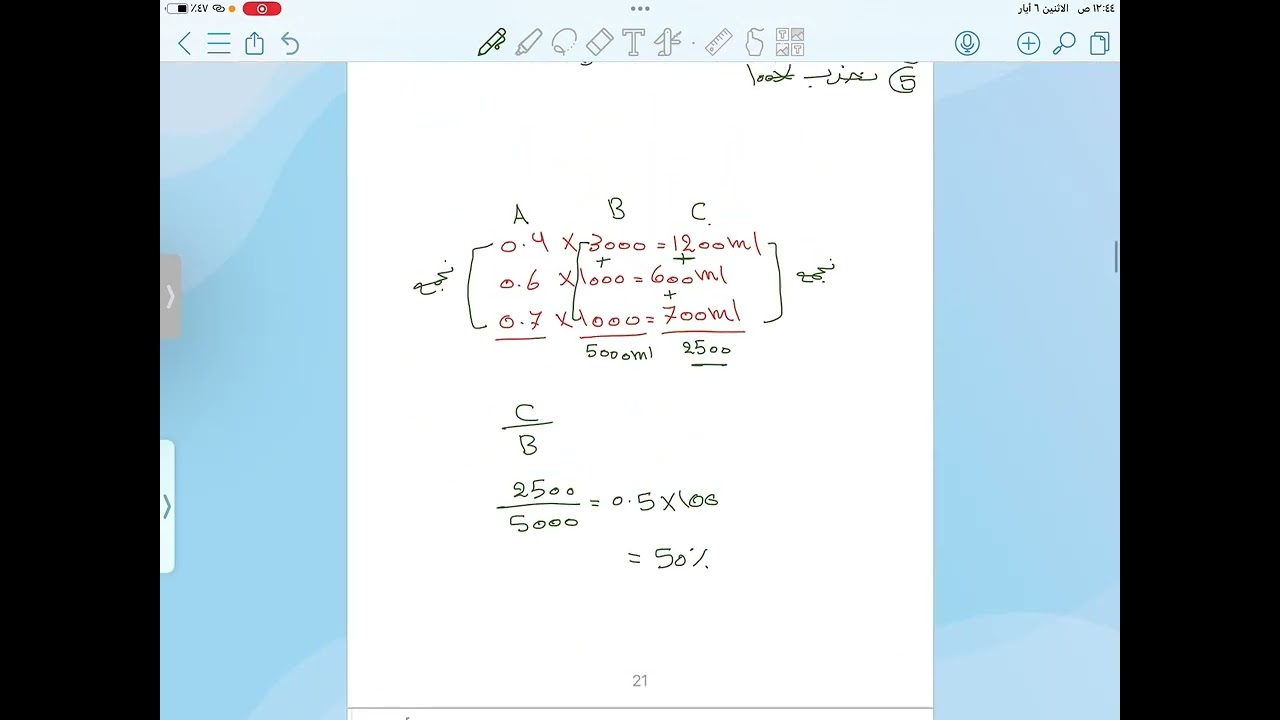 ١٢:٤٤ ص الاثنين ٦ أيار
٪٤٧
5 نضرب ×١٠٠
A B C
0.4 × 3000 = 1200ml
+ +
نجمع 0.6 × 1000 = 600ml نجمع
+
0.7 × 1000 = 700ml
5000ml 2500
C
B
2500
5000
= 0.5 × 100
= 50%
21